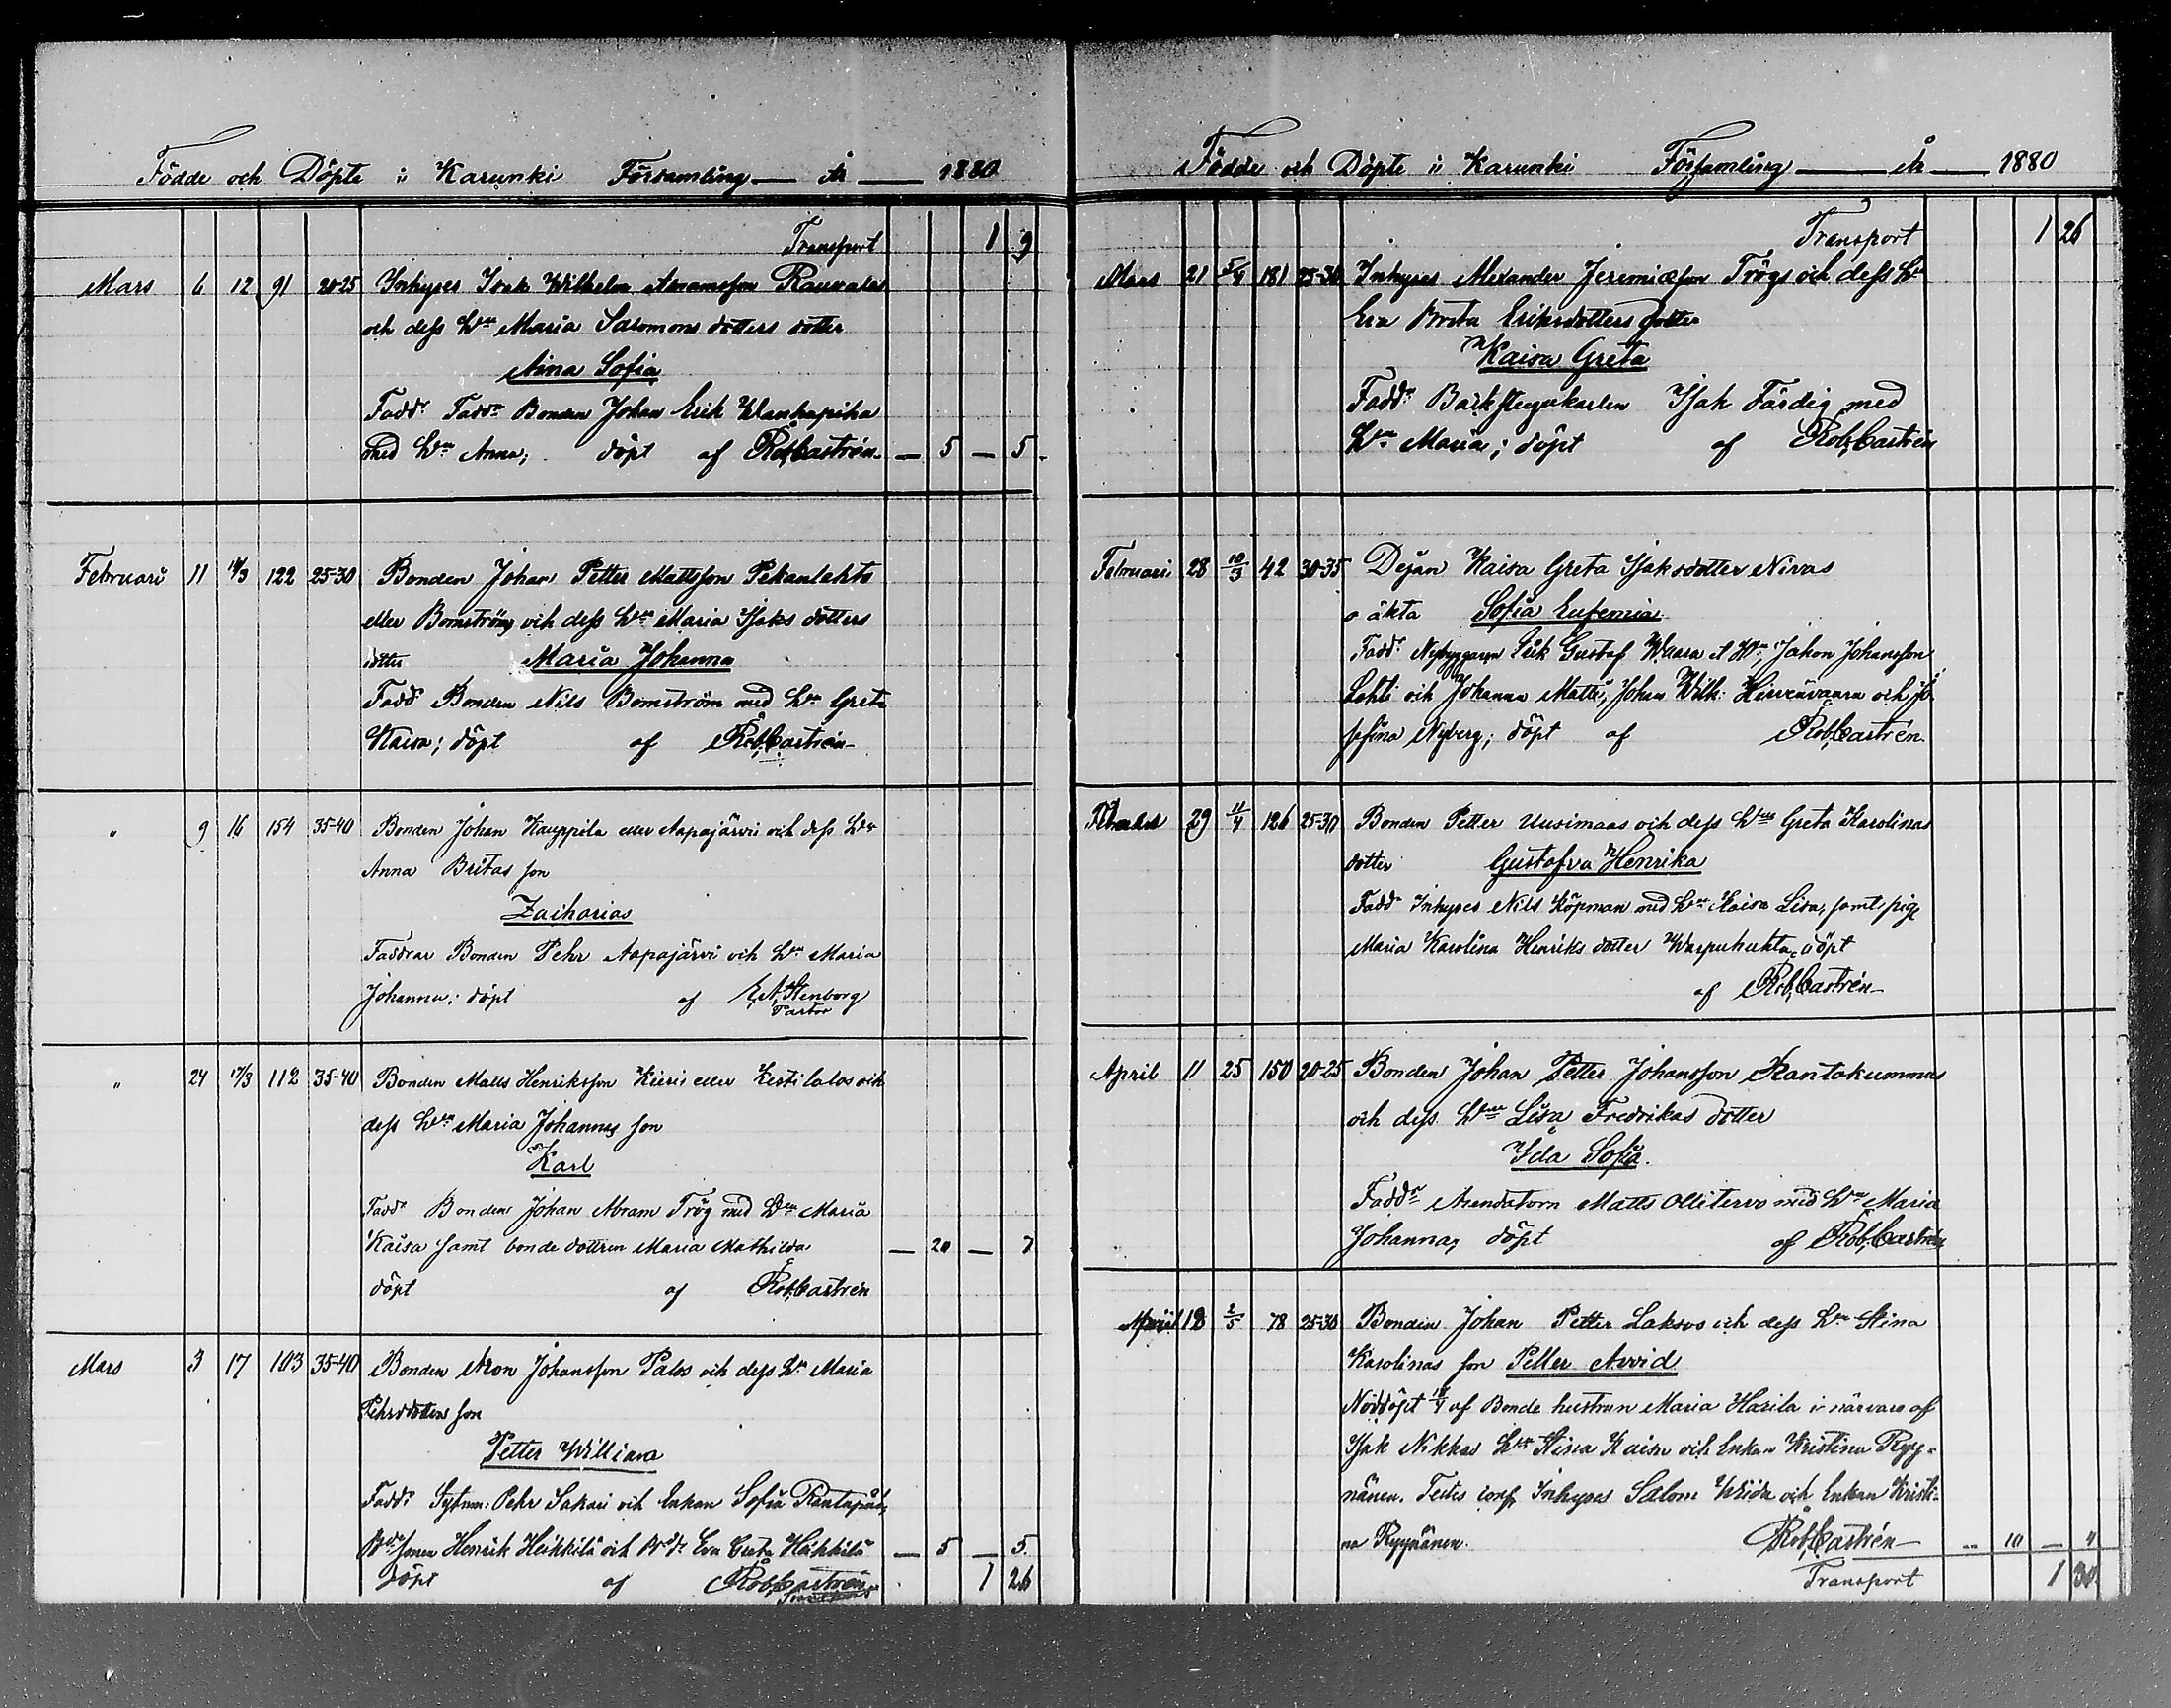 Födde och Döpte i Karunki Församling — år — 1880
Transport 1 9
Mars 6 12 91 20-25 Inhyses Isak Wilhelm Abramsson Rauvalas
och dess Hu Maria Salomonsdotters dotter
Aina Sofia
Fadd: Fadd: Bonden Johan Erik Wanhapiha
med Hu Anna; döpt af Rob. Castrén — 5 — 5
Februari 11 14/3 122 25-30 Bonden Johan Petter Mattsson Pekanlahto
eller Bomström och dess Hu Maria Isaks dotters
dotter Maria Johanna
Fadd Bonden Nils Bomström med Hu Greta
Kaisa; döpt af Rob. Castrén
" 9 16 154 35-40 Bonden Johan Kauppila eller Aapajärvi och dess Hu
Anna Britas son
Zacharias
Faddrar Bonden Pehr Aapajärvi och Hu Maria
Johanna; döpt af Stenborg
Pastor
" 24 17/3 112 35-40 Bonden Matts Henriksson eller och
dess Hu Maria Johannas son
Karl
Fadd: Bonden Johan Abram Trög med Hu Maria
Kaisa samt bonde dottren Maria Mathilda — 20 — 7
döpt af Rob. Castrén
Mars 3 17 103 35-40 Bonden Aron Johansson Palos och dess Hu Maria
Pehrsdotters son
Petter William
Fadd: Pehr Sakari och Enkan Sofia
sonen Henrik Heikkilä och Eva Greta Heikkilä — 5 — 5
döpt af Rob. Castrén 1 26
Födde och Döpte i Karunki Församling — år — 1880
Transport 1 26
Mars 21 5/4 181 25-30 Inhyses Alexander Jeremiæson Trögs och dess Hu
Eva Brita Eriksdotters dotter
Kaisa Greta
Fadd: Isak Färdig med
Hu Maria; döpt af Rob. Castrén
Februari 28 10/3 42 30-35 Dejan Kaisa Greta Isaksdotter Nivas
oäkta Sofia Eufemia
Fadd: Nybyggaren Erik Gustaf Waara et Hu, Jakon Johansson
Lehti och Johanna Matti, Johan Wilh: Hirvenvaara och Jo-
sefina Nyberg; döpt af Rob. Castrén
29 11/4 126 25-30 Bonden Petter Uusimaas och dess Hu Greta Karolinas
dotter Gustafva Henrika
Fadd: Inhyses Nils Köpman med Hu Kaisa Lisa, samt pig:
Maria Karolina Henriks dotter döpt
af Rob. Castrén
April 11 25 150 20-25 Bonden Johan Petter Johansson Rantakummas
och dess Hu Lisa Fredrikas dotter
Ida Sofia
Fadd: Arendatorn Matts Ollitervo med Hu Maria
Johanna, döpt af Rob. Castrén
April 18 2/5 78 25-30 Bonden Johan Petter Laksos och dess Hu Stina
Karolinas son Petter Arvid
Nöddöpt af Bonde hustrun Maria Harila i närvaro af
Isak Nikkas Hu Stina Kaisa och Enkan Kristina Ryy-
nänen. Testes conf. Inhyses Salom och Enkan Kristi-
na Ryynänen. Rob. Castrén — 10 — 4
Transport 1 30